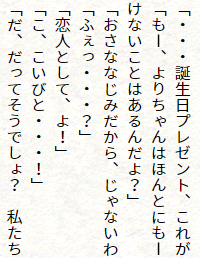 「・・・誕生日プレゼント、これが
「もー、よりちゃんはほんとにもー
けないことはあるんだよ？」
「おさななじみだから、じゃないわ
「ふぇっ・・・？」
「恋人として、よ！」
「こ、こいびと・・・！」
「だ、だってそうでしょ？　私たち